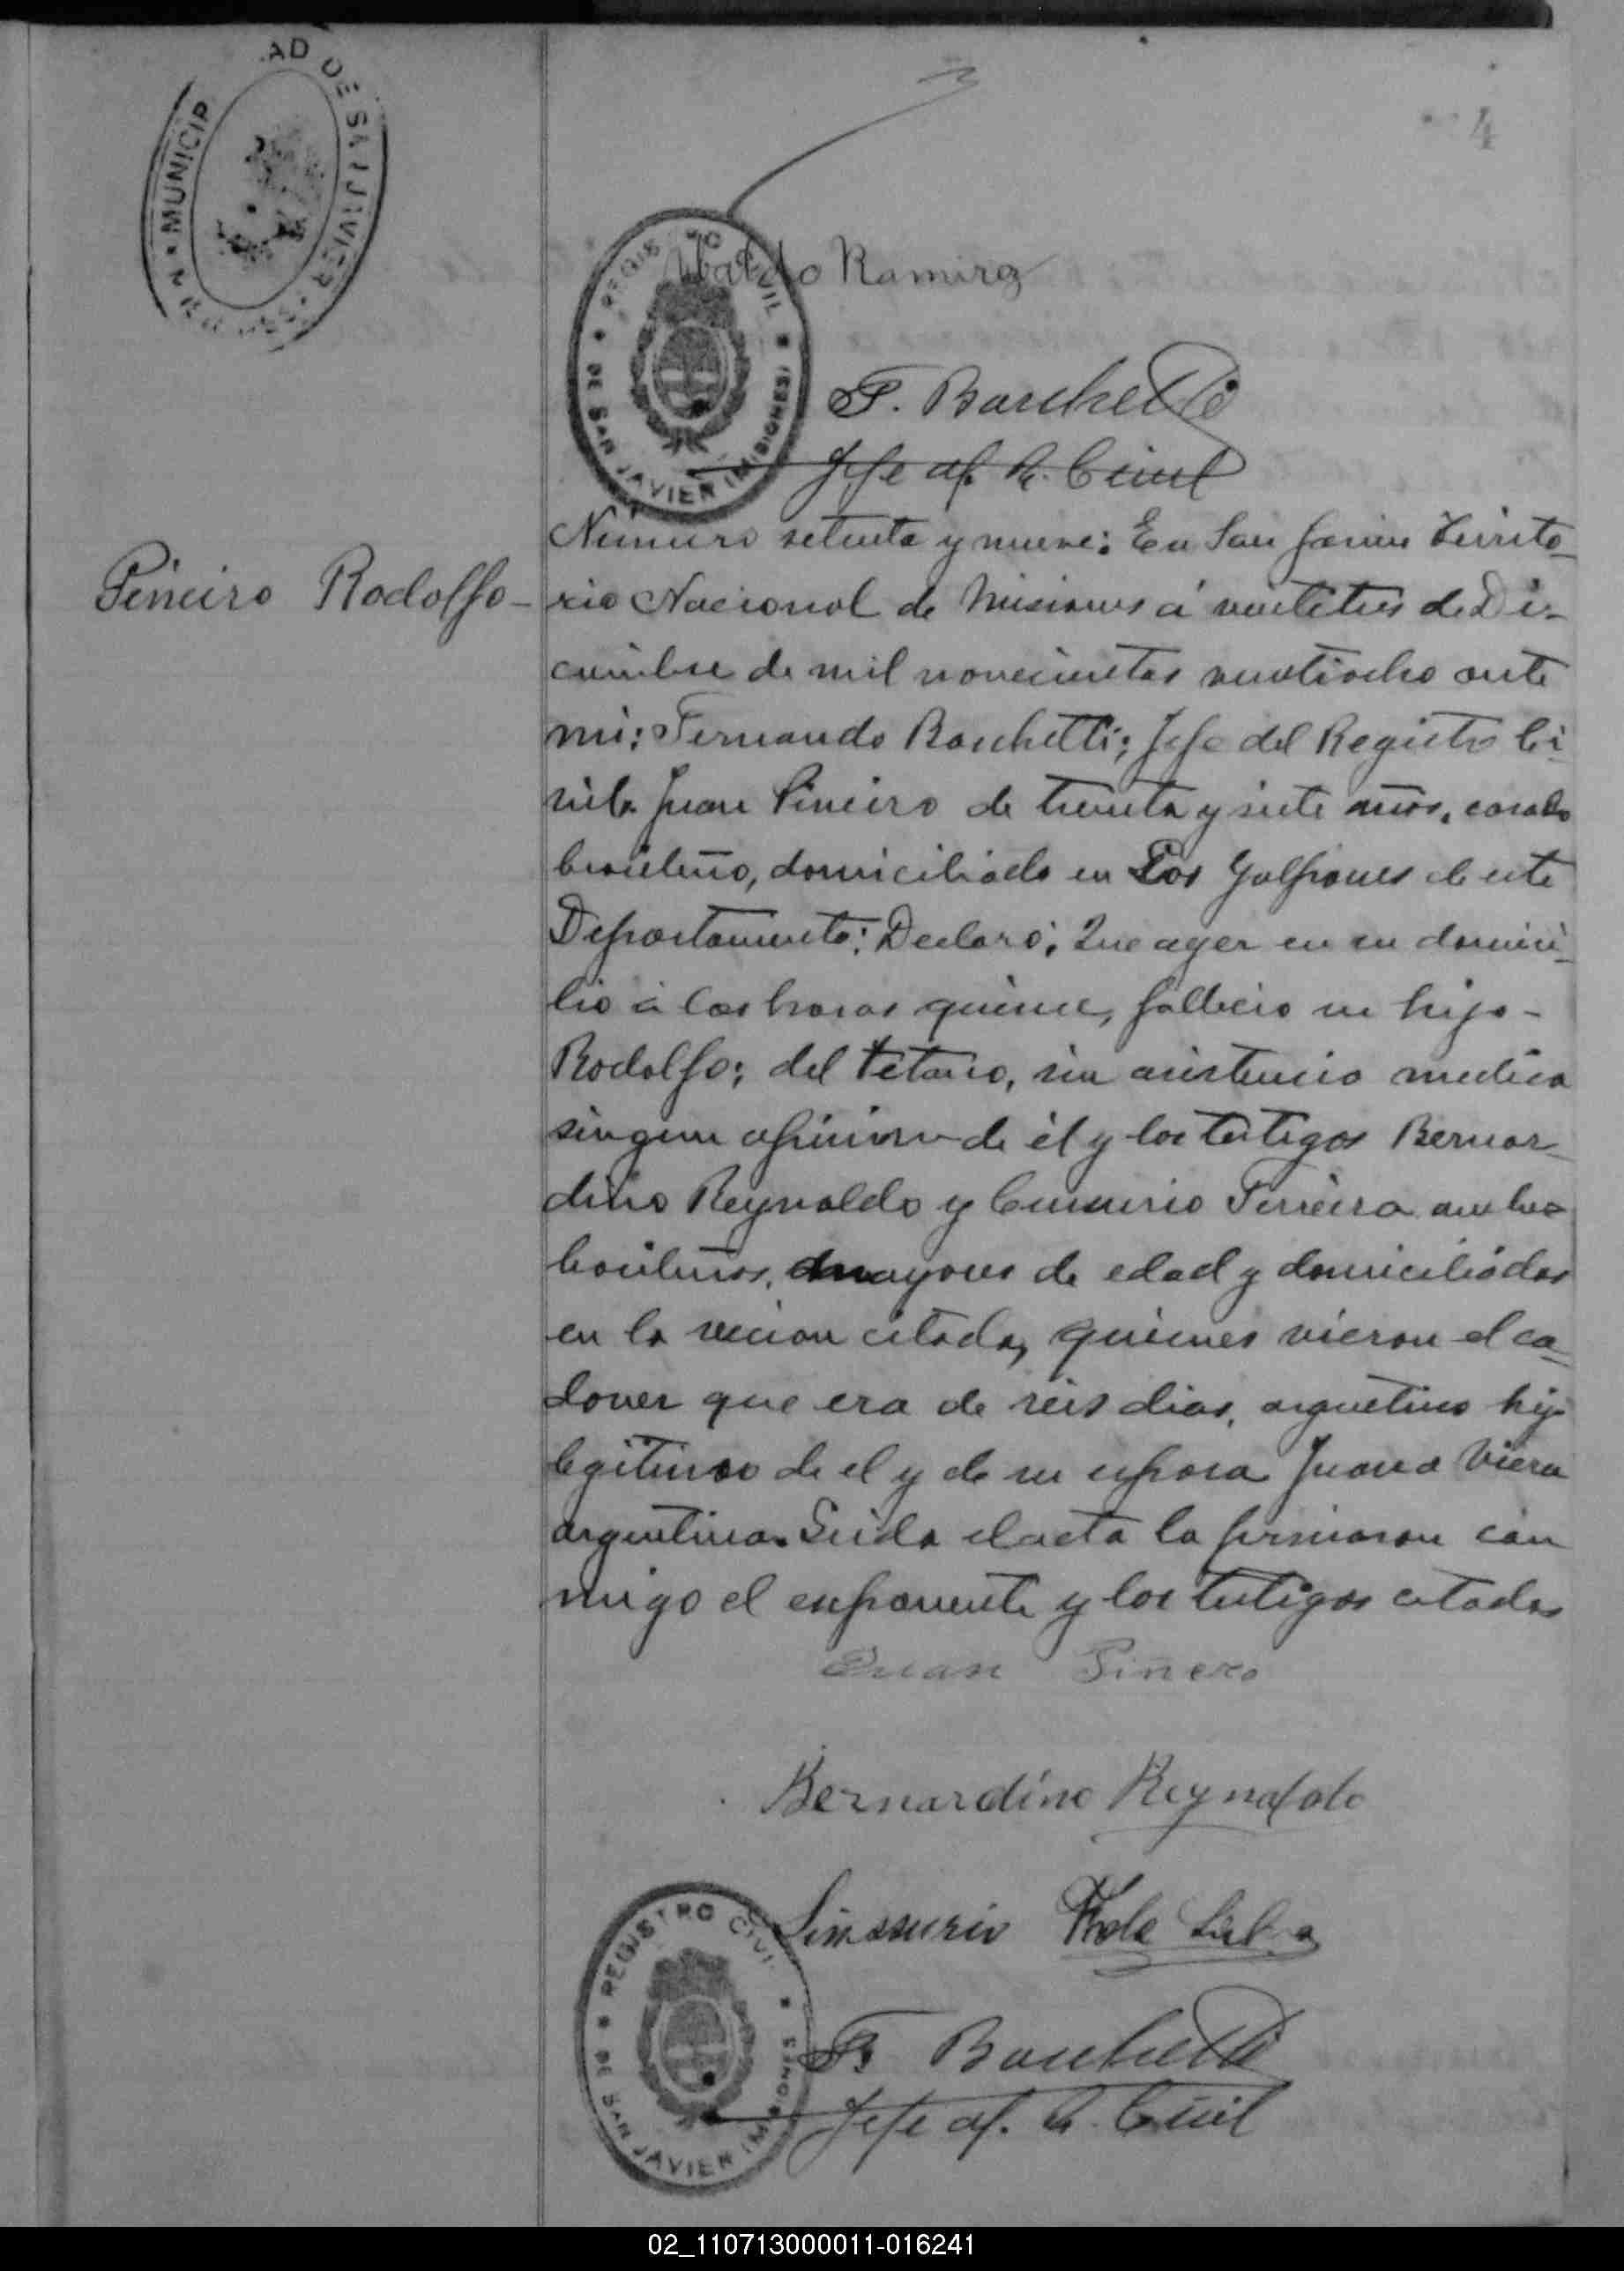 MUNICIP AD DE SN JAVIER
4
REGIS RO CIVIL
DE SAN JAVIER (MISIONES)
Ubaldo Ramirez
F. Barchetti
Jefe of. R. Civil
Piñeiro Rodolfo-
Número setenta y nueve: En San Javier Territo-
rio Nacional de Misiones á veintitres de Di-
ciembre de mil novecientos veintiocho ante
mi: Fernando Barchetti; Jefe del Registro Ci-
vil. Juan Piñeiro de treinta y siete años, casado
brasileño, domiciliado en Los Galpones de este
Departamento: Declaró: Que ayer en su domici-
lio á las horas quince, fallecio su hijo-
Rodolfo; del tetano, sin asistencia medica
segun opinion de él y los testigos Bernar-
dino Reynaldo y Ferreira ambos
brasileños, mayores de edad y domiciliados
en la seccion citada, quienes vieron el ca-
daver que era de seis dias, argentino hijo
legitimo de el y de su esposa Juana Viera
argentina. Leida el acta la firmaron con
migo el exponente y los testigos citados
Juan Piñero
Bernardino Reynaldo
REGISTRO CIVIL
DE SAN JAVIER (MISIONES
F. Barchetti
Jefe of. R. Civil
02_110713000011-016241